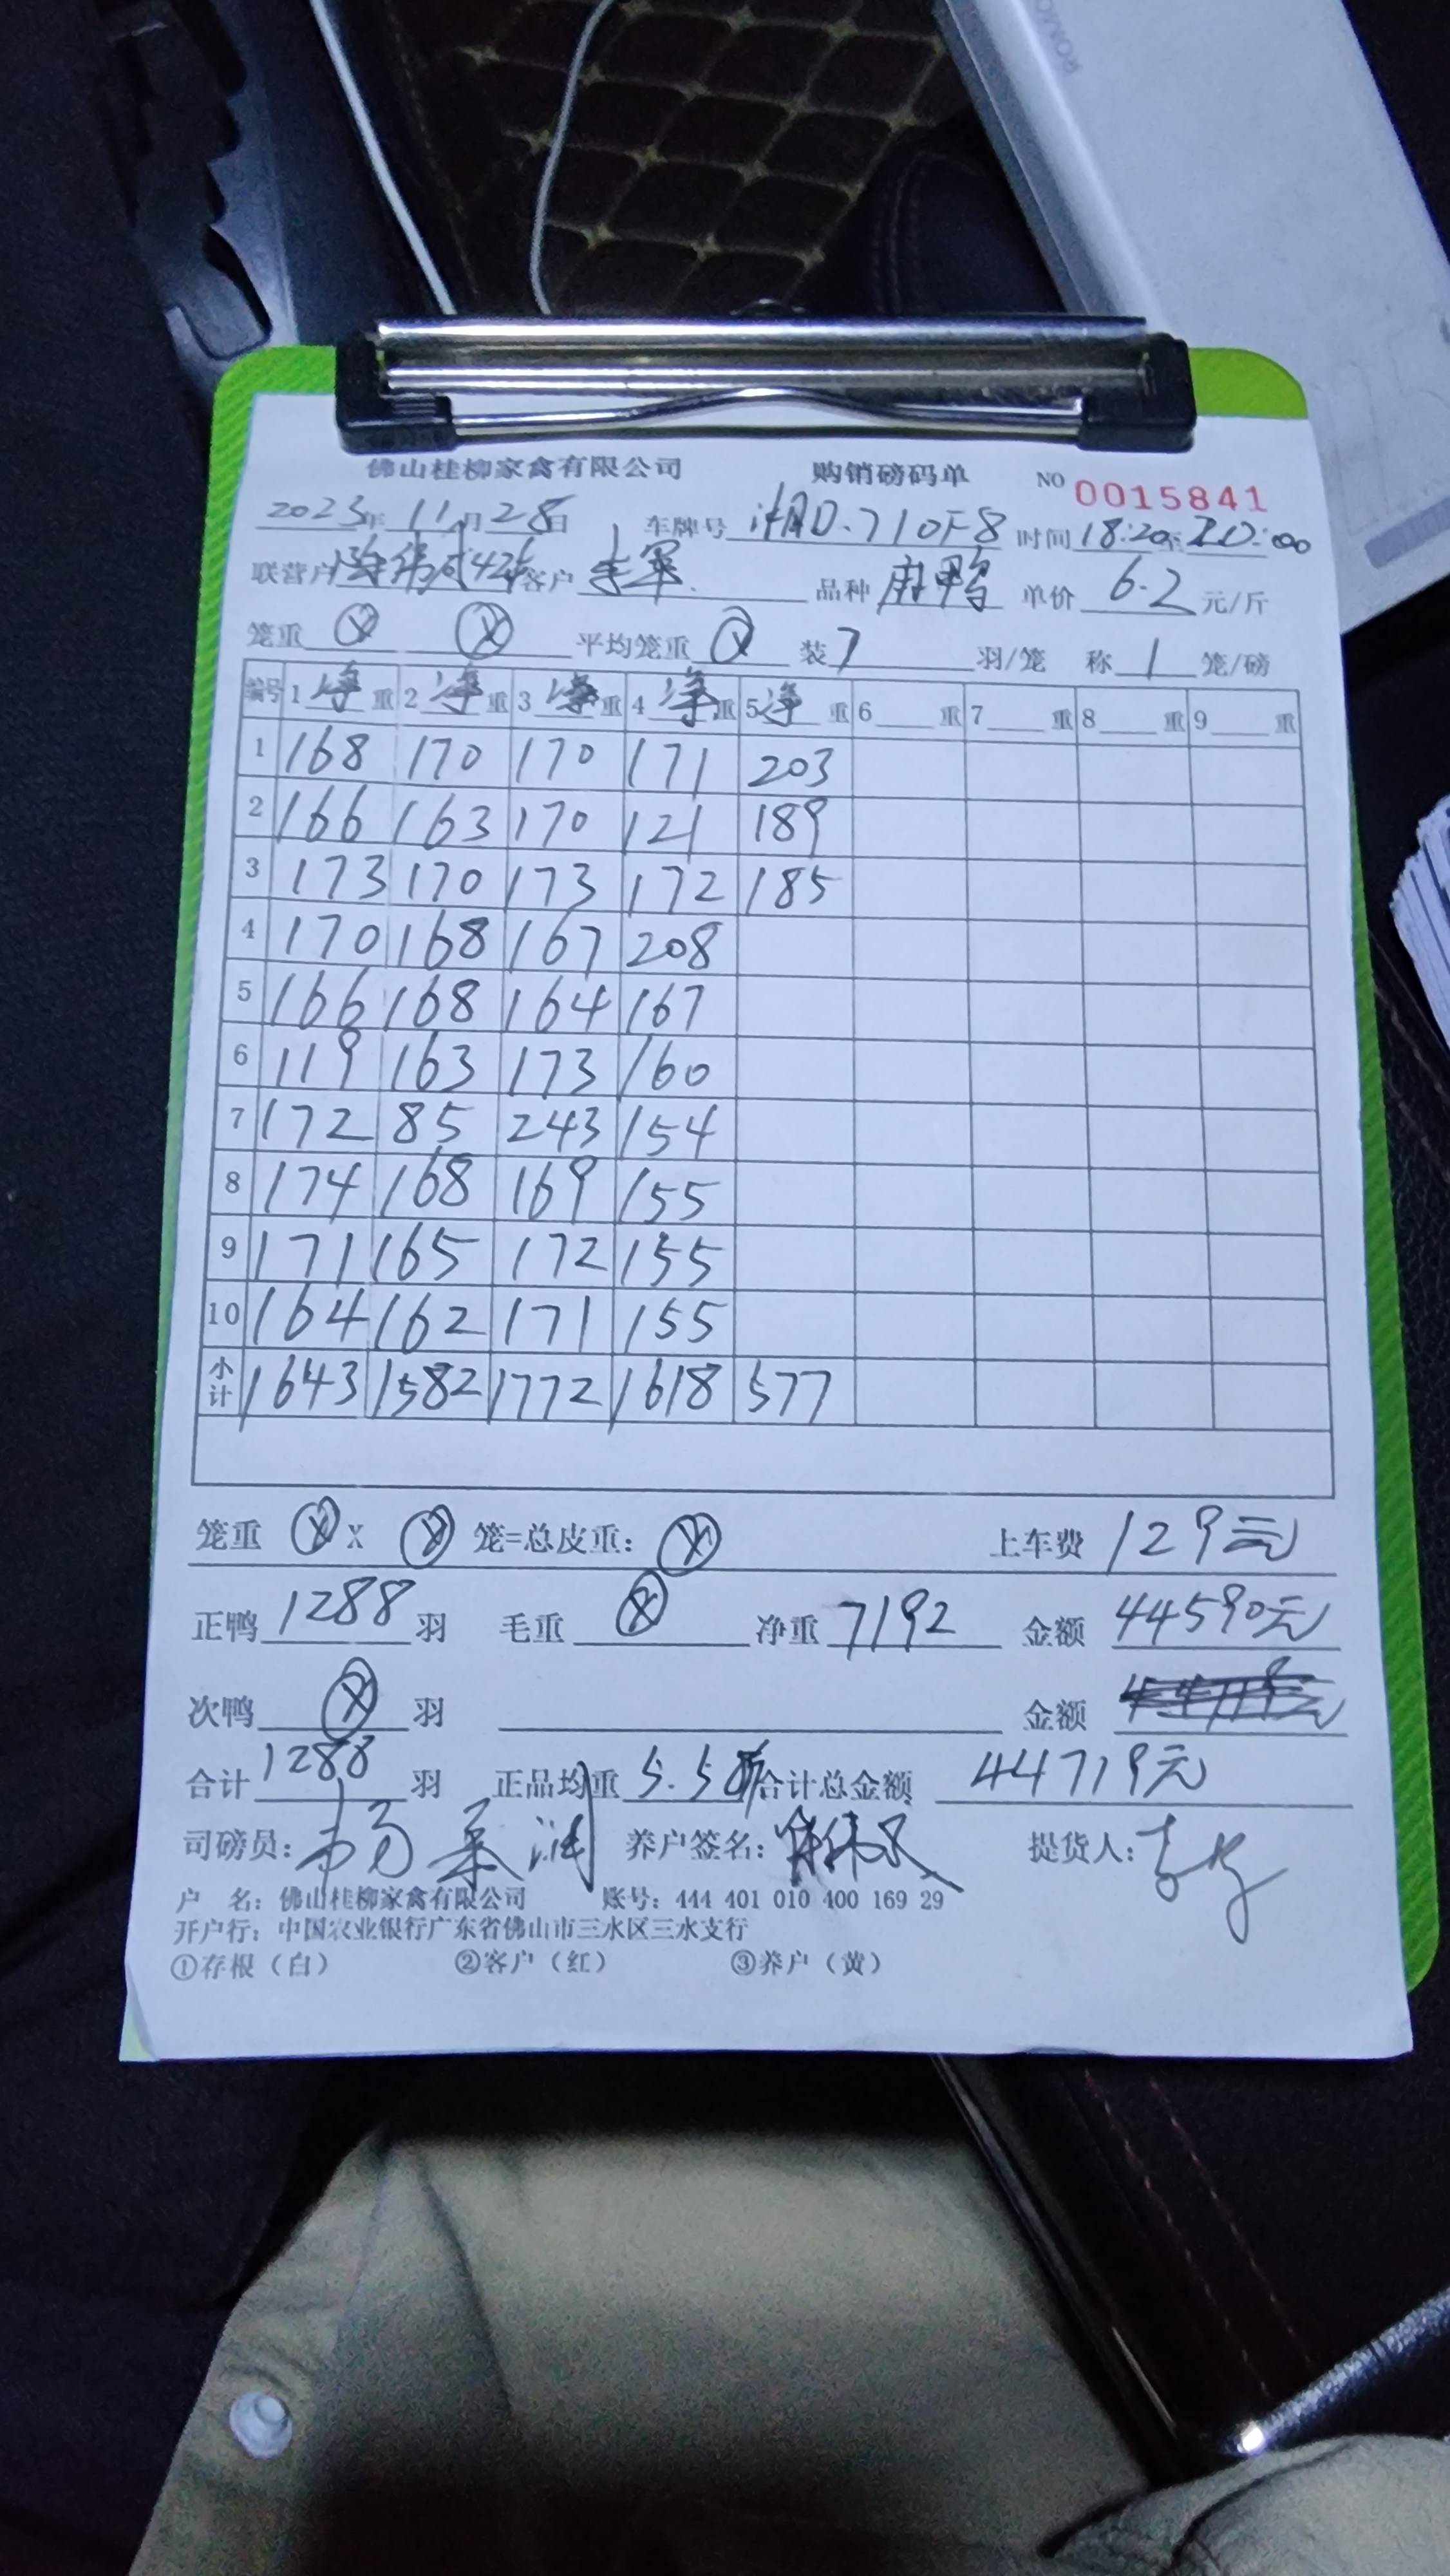 佛山桂柳家禽有限公司 购销磅码单 NO 0015841
2023年 11月 28日 车牌号 湘AD·710F8 时间 18:20至20:00
联营户 客户 李军 品种 麻鸭 单价 6.2 元/斤
笼重 ⊗ ⊗ 平均笼重 ⊗ 装 7 羽/笼 称 1 笼/磅
编号 1 净 重 2 净 重 3 净 重 4 净 重 5 净 重 6 重 7 重 8 重 9 重
1 168 170 170 171 203
2 166 163 170 121 189
3 173 170 173 172 185
4 170 168 167 208
5 166 168 164 167
6 119 163 173 160
7 172 85 243 154
8 174 168 169 155
9 171 165 172 155
10 164 162 171 155
小计 1643 1582 1772 1618 577
笼重 ⊗ X ⊗ 笼=总皮重: ⊗ 上车费 129元
正鸭 1288 羽 毛重 ⊗ 净重 7192 金额 44590元
次鸭 ⊗ 羽 金额
合计 1288 羽 正品均重 5.58斤 合计总金额 44719元
司磅员: 养户签名: 提货人:
户 名: 佛山桂柳家禽有限公司 账号: 444 401 010 400 169 29
开户行: 中国农业银行广东省佛山市三水区三水支行
①存根（白） ②客户（红） ③养户（黄）